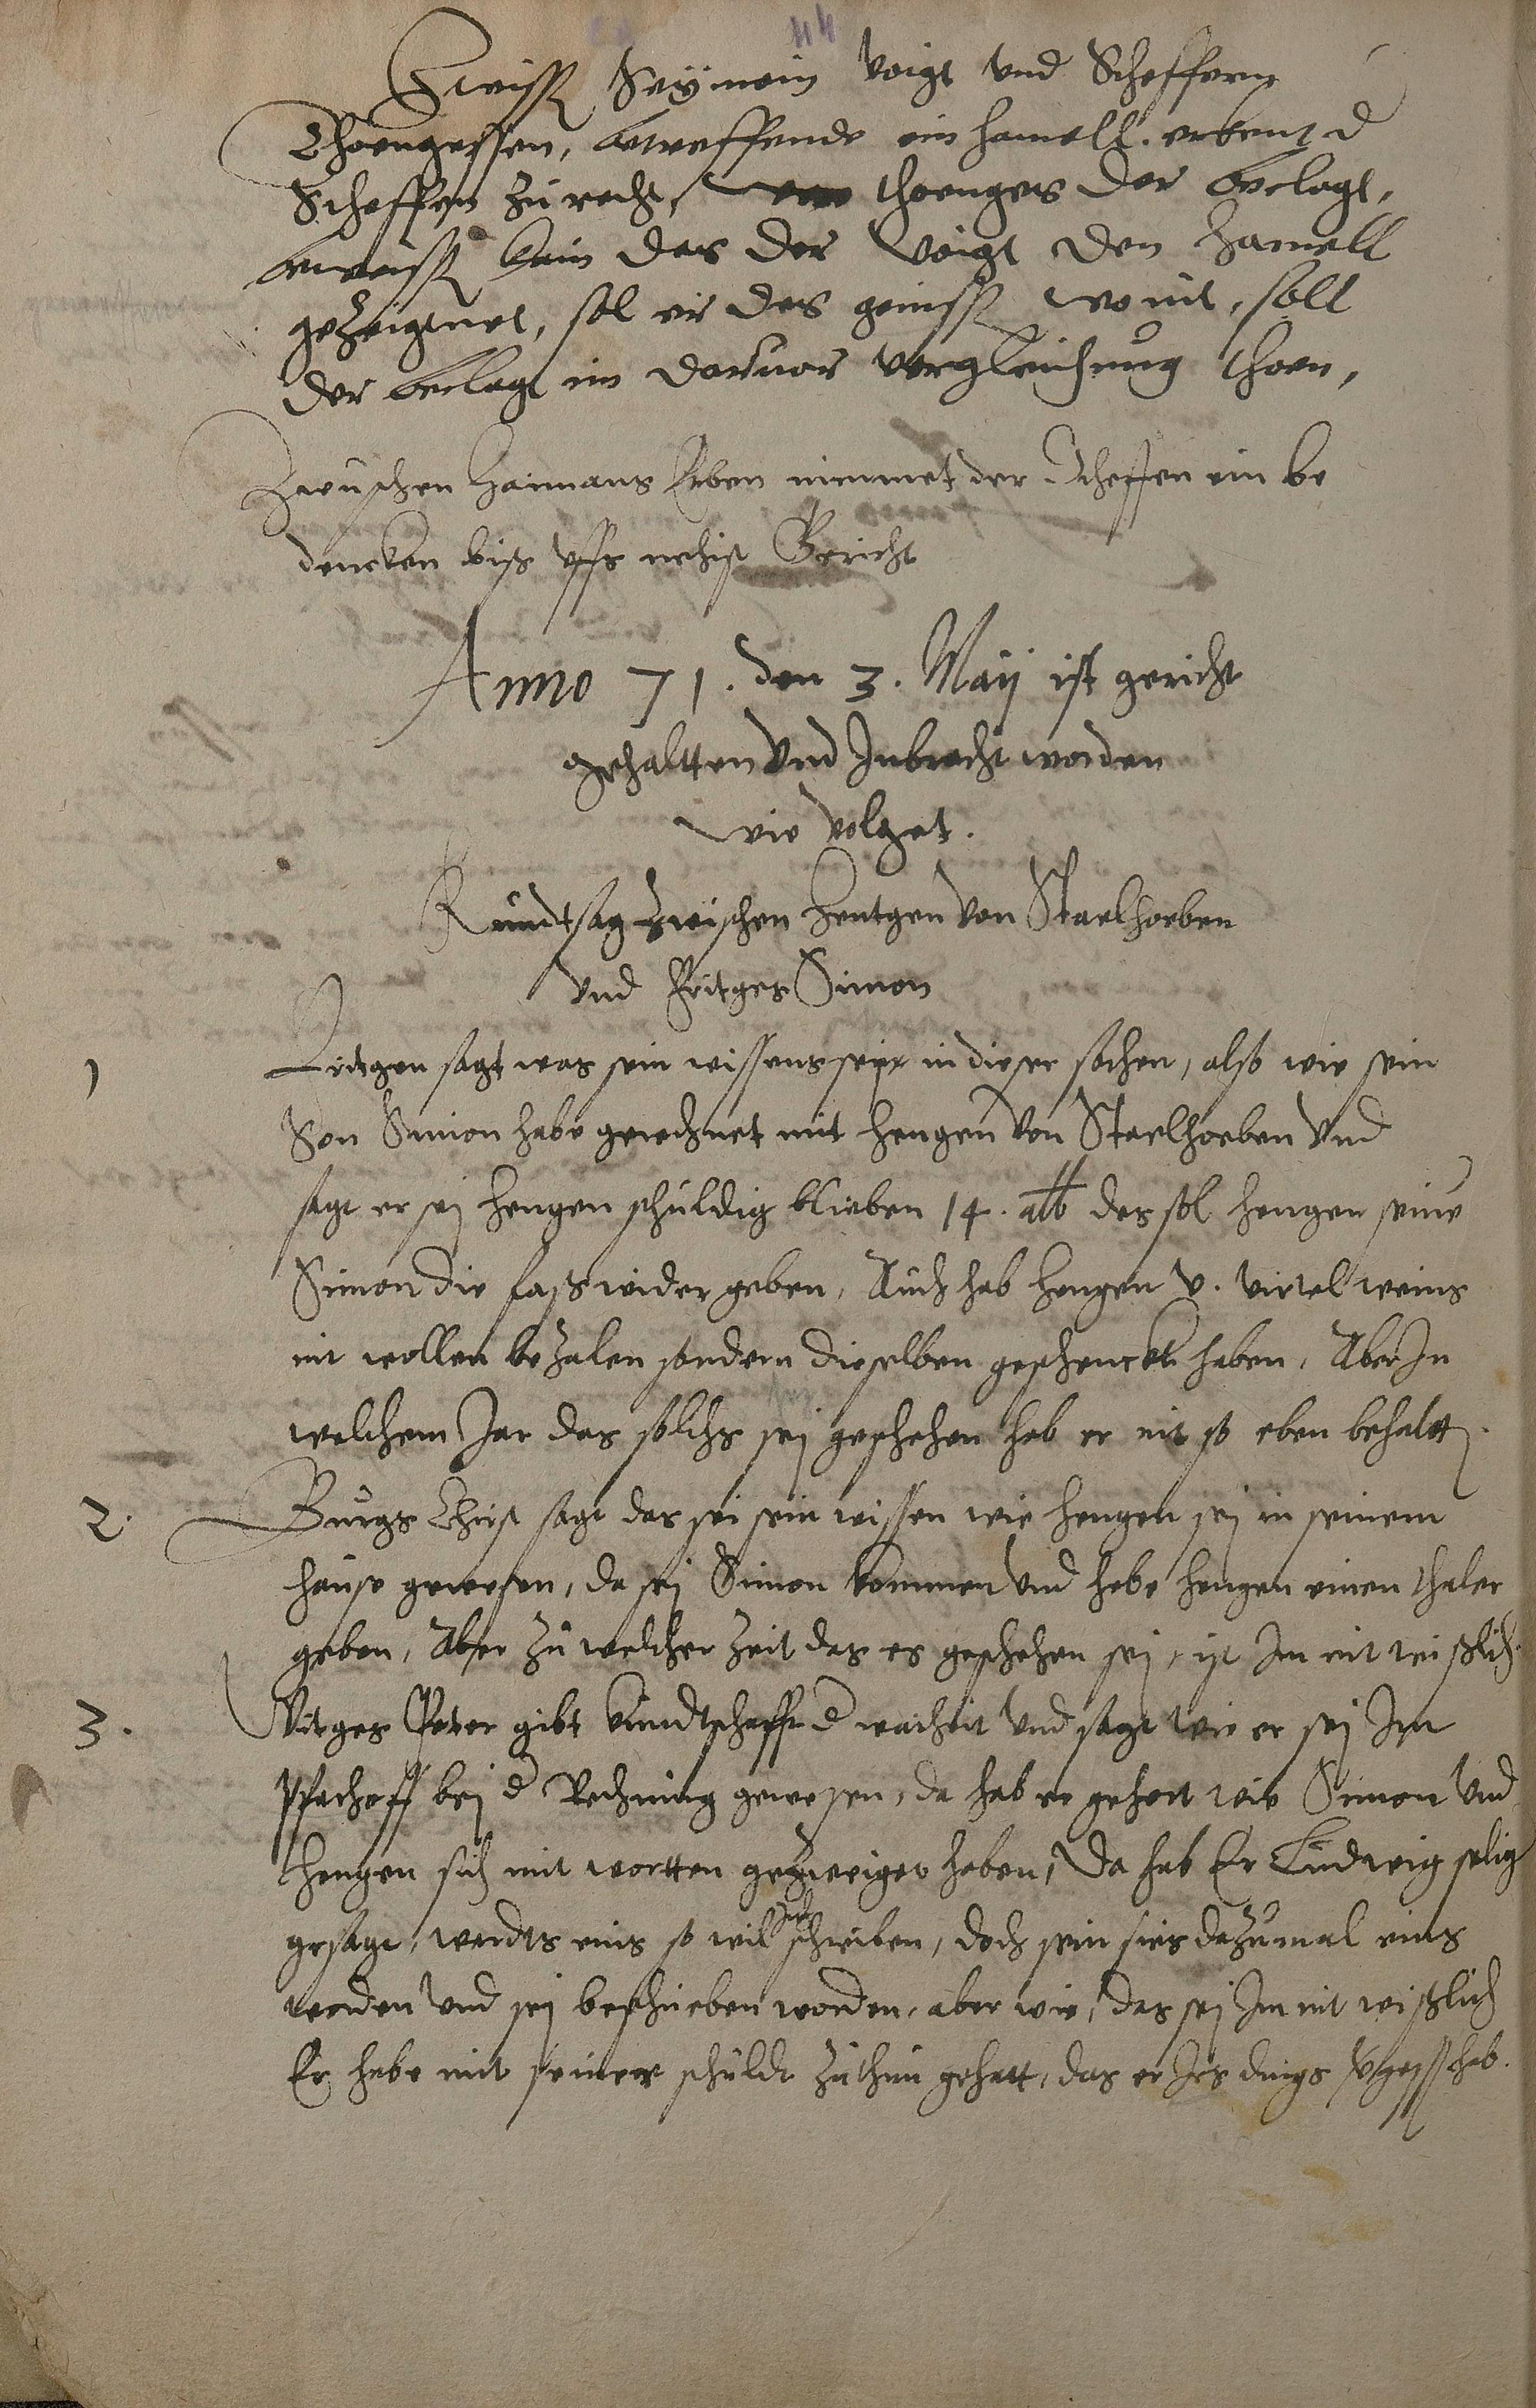 44
Zwiss Seymoin Voigt und Scheffern
Thoengessen, betreffende ein hamell. erkent d
Scheffen zu recht, thoenges der beclagt,
beweiss kein das der Voigt den hamell
gezeignet, sol er des geniss wo nit, soll
der beclagt im daruor vergleichung thoen,
Zwuschen Haimans Erben nimmet der Scheffen ein be
dencken biß uffs nehist Gericht
Anno 71. den 3. Maij ist gericht
gehaltten und Inbracht worden
wie volget.
Kundtsag zwischen Hentgen von Staelhoeben
und Fritges Simon
1 Fritgen sagt was sein wissens seye in dieser sachen, also wie sein
Son Simon habe gerechnet mit Hengen von Staelhoeben und
sagt er sej Hengen schuldig blieben 14. alb des sol Hengen seine
Simon die faß wider geben, Auch hab Hengen v. virtel weins
nit wollen bezalen sondern dieselben geschenckt haben, Aber In
welchem Jar das solchs sej geschehen hab er nit so eben behaltt.
2. Burgs Christ sagt das sei sein wissen wie Hengen sej in seinem
hause gewesen, da sej Simon kommen und habe Hengen einen thaler
geben, Aber zu welcher zeit das es geschehen sej, ist Im nit wißlich.
3. Vitges Peter gibt kundtschafft d warheit und sagt wie er sej Im
Pfachoff bej d Rechnung gewesen, da hab er gehort wie Simon und
Hengen sich mit wortten gezweiget haben, Da hab Er Ludwig selig
gesagt, werdts eins so wil Ich schreiben, doch sein sies dazumal eins
worden und sej beschrieben worden, aber wie, das sej Im nit wißlich
Er habe mit seiner schuldt zuthun gehatt, das er Irs dings vgess hab.